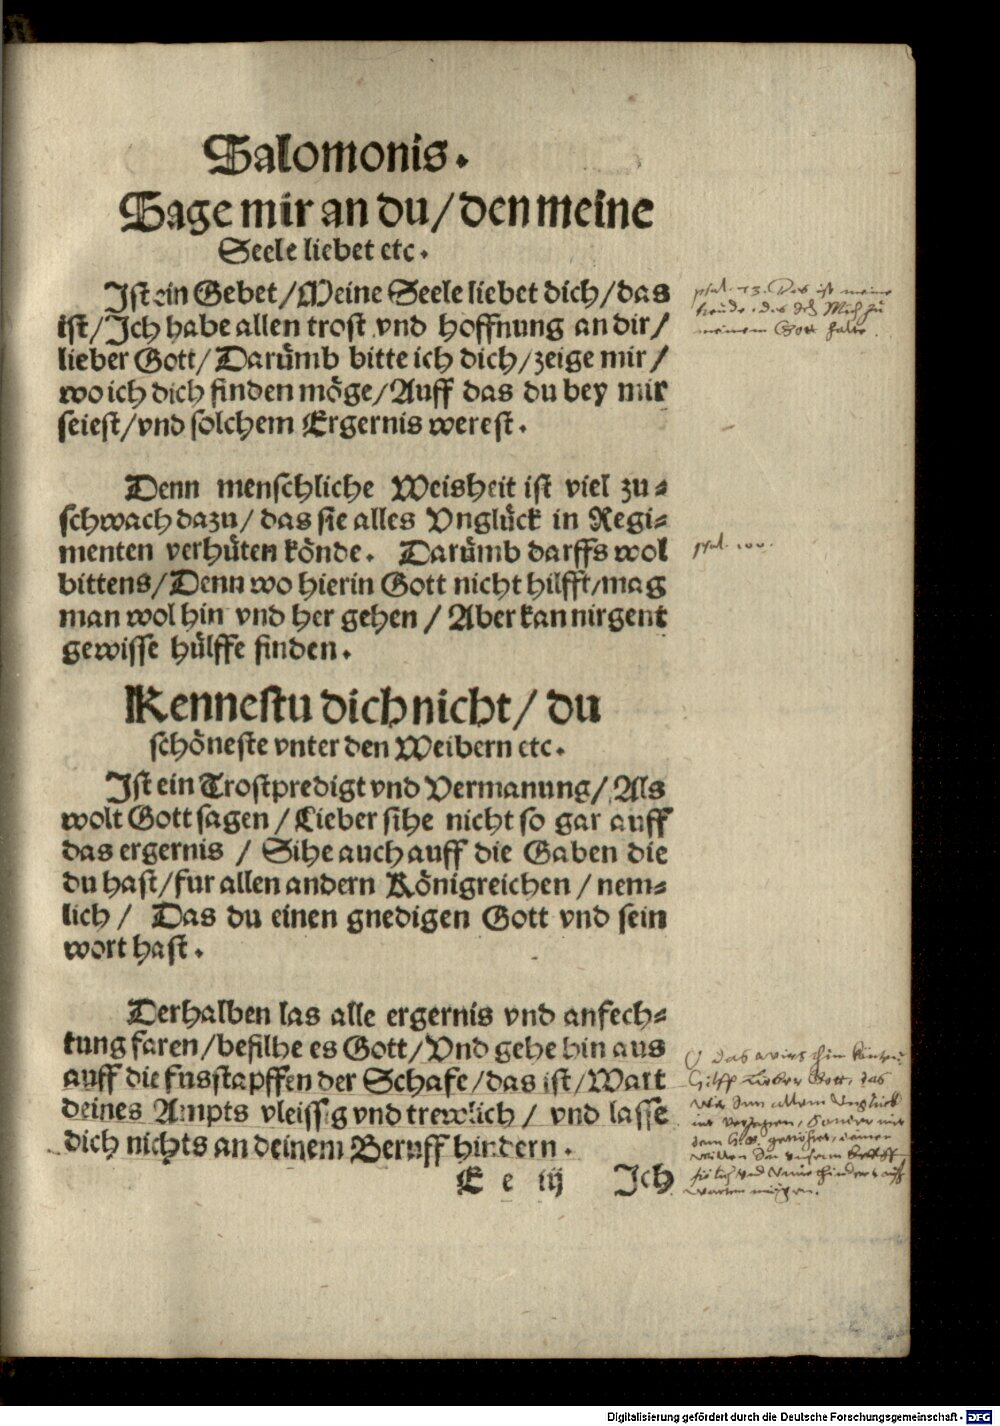 Salomonis.
Sage mir an du/den meine
Seele liebet etc.
Ist ein Gebet/Meine Seele liebet dich/das
ist/Ich habe allen trost vnd hoffnung an dir/
lieber Gott/Darümb bitte ich dich/zeige mir/
wo ich dich finden möge/Auff das du bey mir
seiest/vnd solchem Ergernis werest.
psal. 73. Das ist meine
freude, das ich Mich zu
meinem Gott halte.
Denn menschliche Weisheit ist viel zu-
schwach dazu/das sie alles Vnglück in Regi-
menten verhüten könde. Darümb darffs wol
bittens/Denn wo hierin Gott nicht hilfft/mag
man wol hin vnd her gehen/Aber kan nirgent
gewisse hülffe finden.
psal.
Kennestu dich nicht/du
schöneste vnter den Weibern etc.
Ist ein Trostpredigt vnd Vermanung/Als
wolt Gott sagen/Lieber sihe nicht so gar auff
das ergernis/Sihe auch auff die Gaben die
du hast/fur allen andern Königreichen/nem-
lich/Das du einen gnedigen Gott vnd sein
wort hast.
Derhalben las alle ergernis vnd anfech-
tung faren/befilhe es Gott/Vnd gehe hin aus
auff die fusstapffen der Schafe/das ist/Wart
deines Ampts vleissig vnd trewlich/vnd lasse
dich nichts an deinem Beruff hindern.
E e iij Ich
das wirs
Hilff Lieber Gott, das
wir Inn allem Vnglück
nit verzagen, Sonder mit
willen
vnd
warten mögen.
Digitalisierung gefördert durch die Deutsche Forschungsgemeinschaft - DFG